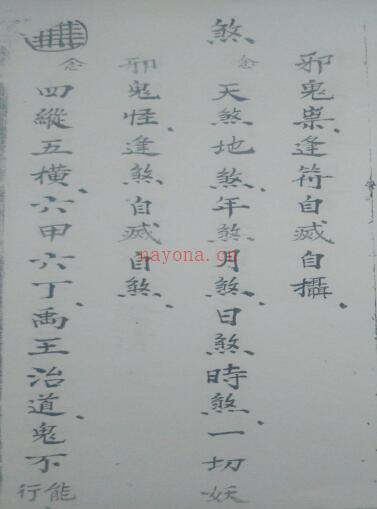 邪鬼祟、逢符自滅自攝、
煞
念
天煞地煞、年煞月煞、日煞時煞、一切妖
邪鬼怪、逢煞自滅自煞、
念
四縱五橫、六甲六丁、禹王治道、鬼不能行、
nayona.cn